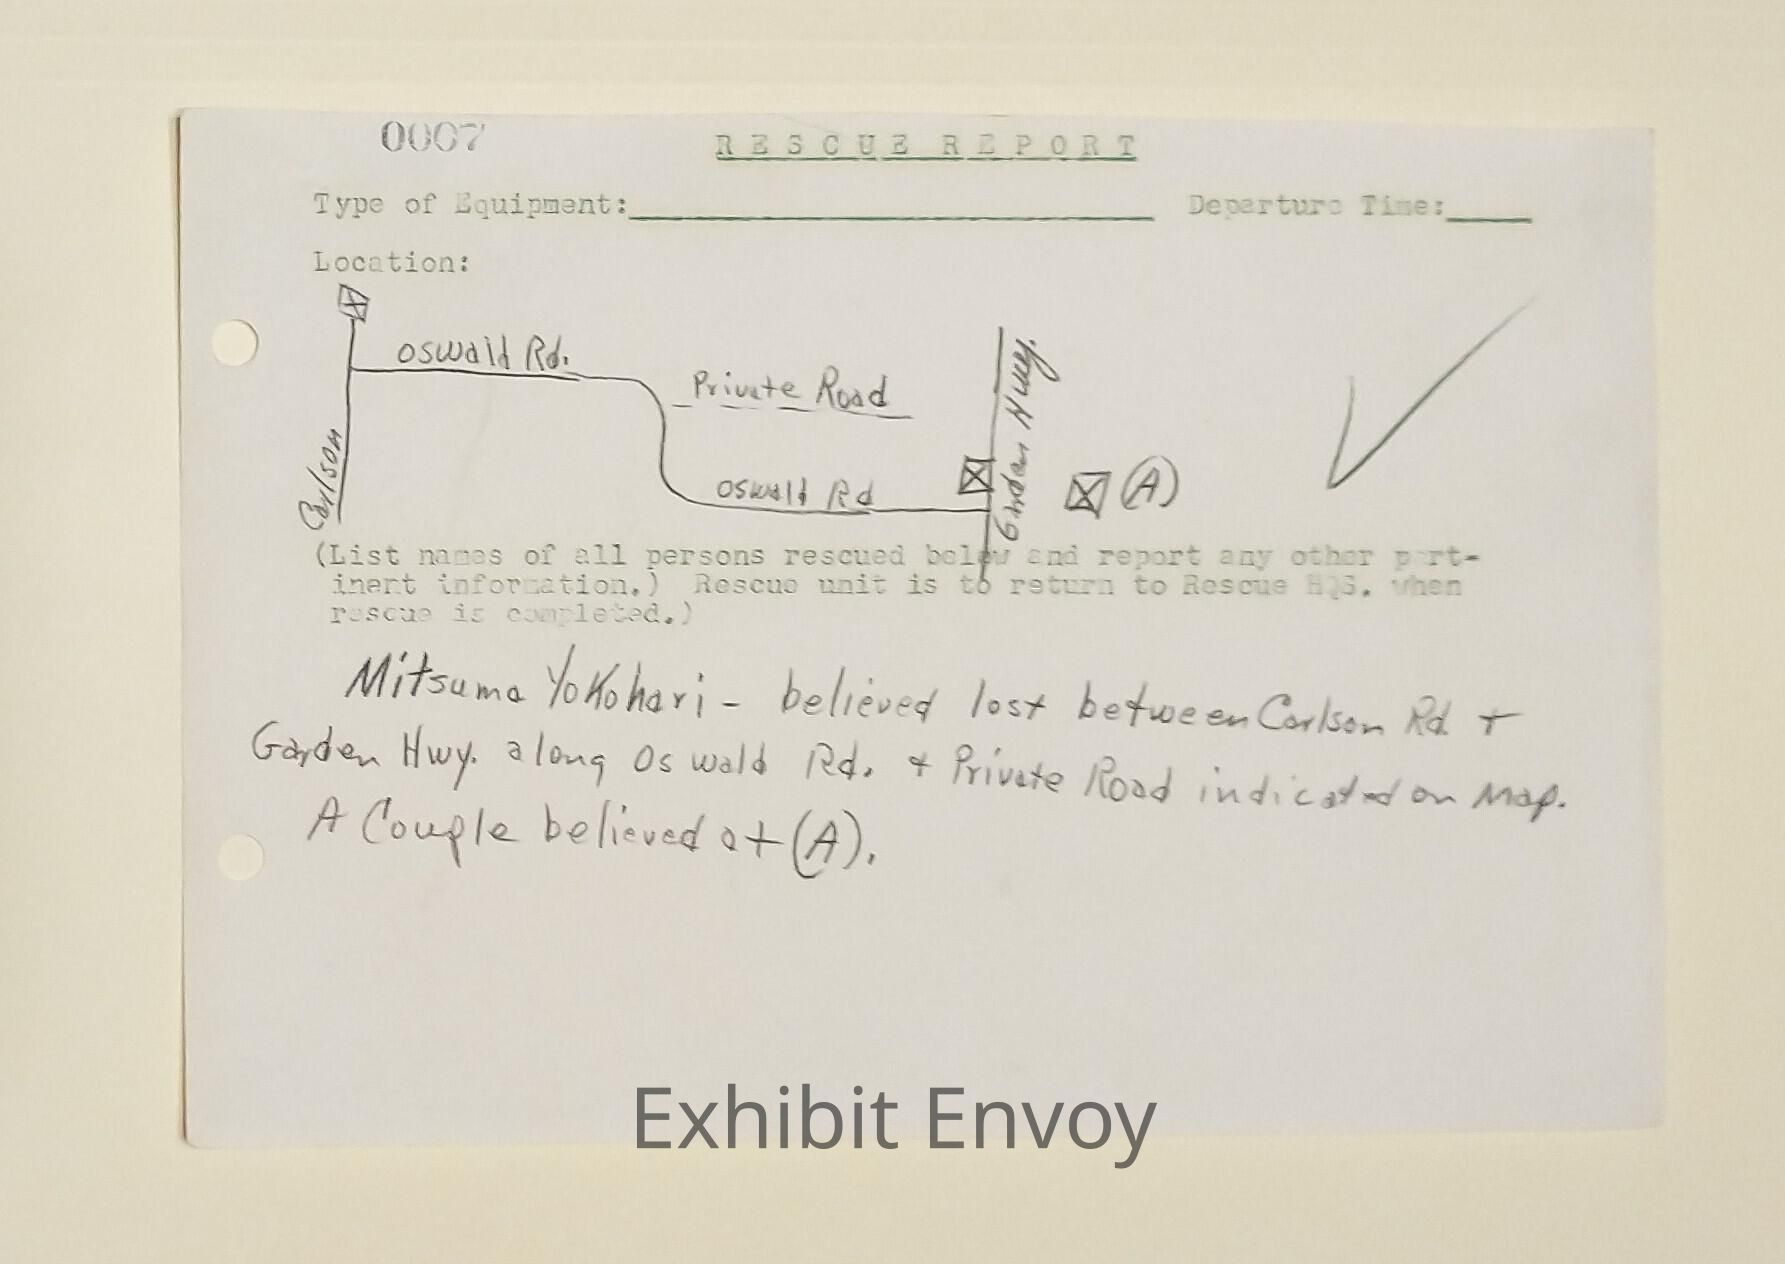 0007
RESCUE REPORT
Type of Equipment: Departure Time:
Location:
Oswald Rd.
Private Road
Carlson
Garden Hwy.
Oswald Rd
(A)
(List names of all persons rescued below and report any other pert-
inent information.) Rescue unit is to return to Rescue HQS. when
rescue is completed.)
Mitsuma Yokohari - believed lost between Carlson Rd. +
Garden Hwy. along Oswald Rd. + Private Road indicated on Map.
A Couple believed at (A).
Exhibit Envoy